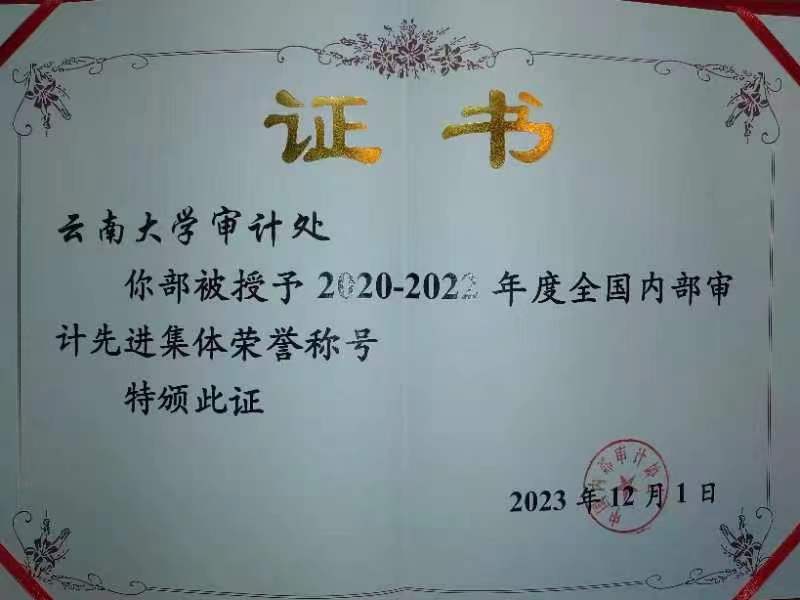 证书
云南大学审计处
你部被授予 2020-2022 年度全国内部审
计先进集体荣誉称号
特颁此证
中国内部审计协会
2023 年 12 月 1 日